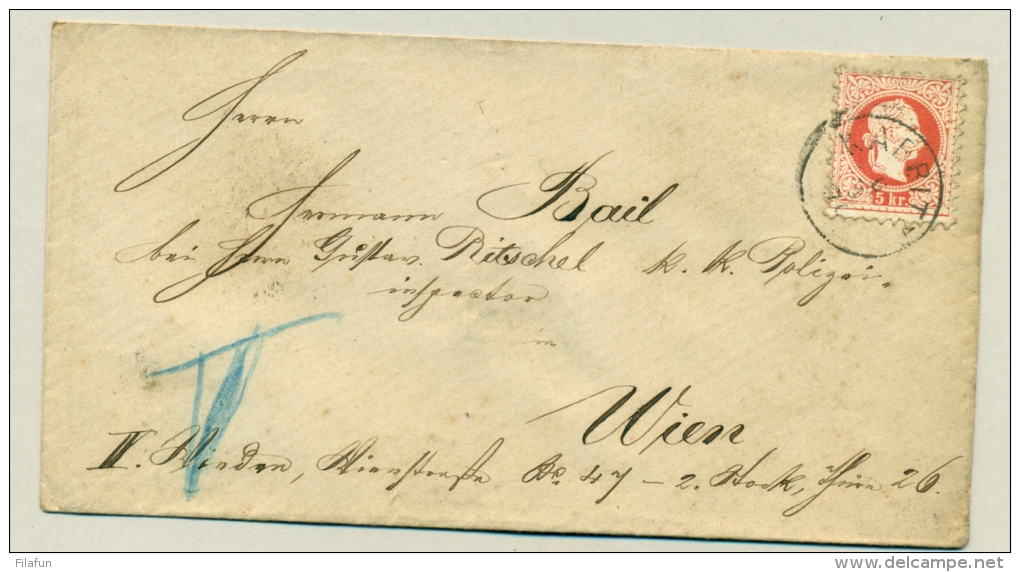 Herrn
Hermann Bail
bei Herrn Gustav Ritschel k. k. Polizei-
inspector
in
Wien
IV. Wieden, Wienstraße No. 47 – 2. Stock, Thüre 26.
5 kr.
Filafun
www.delcampe.net